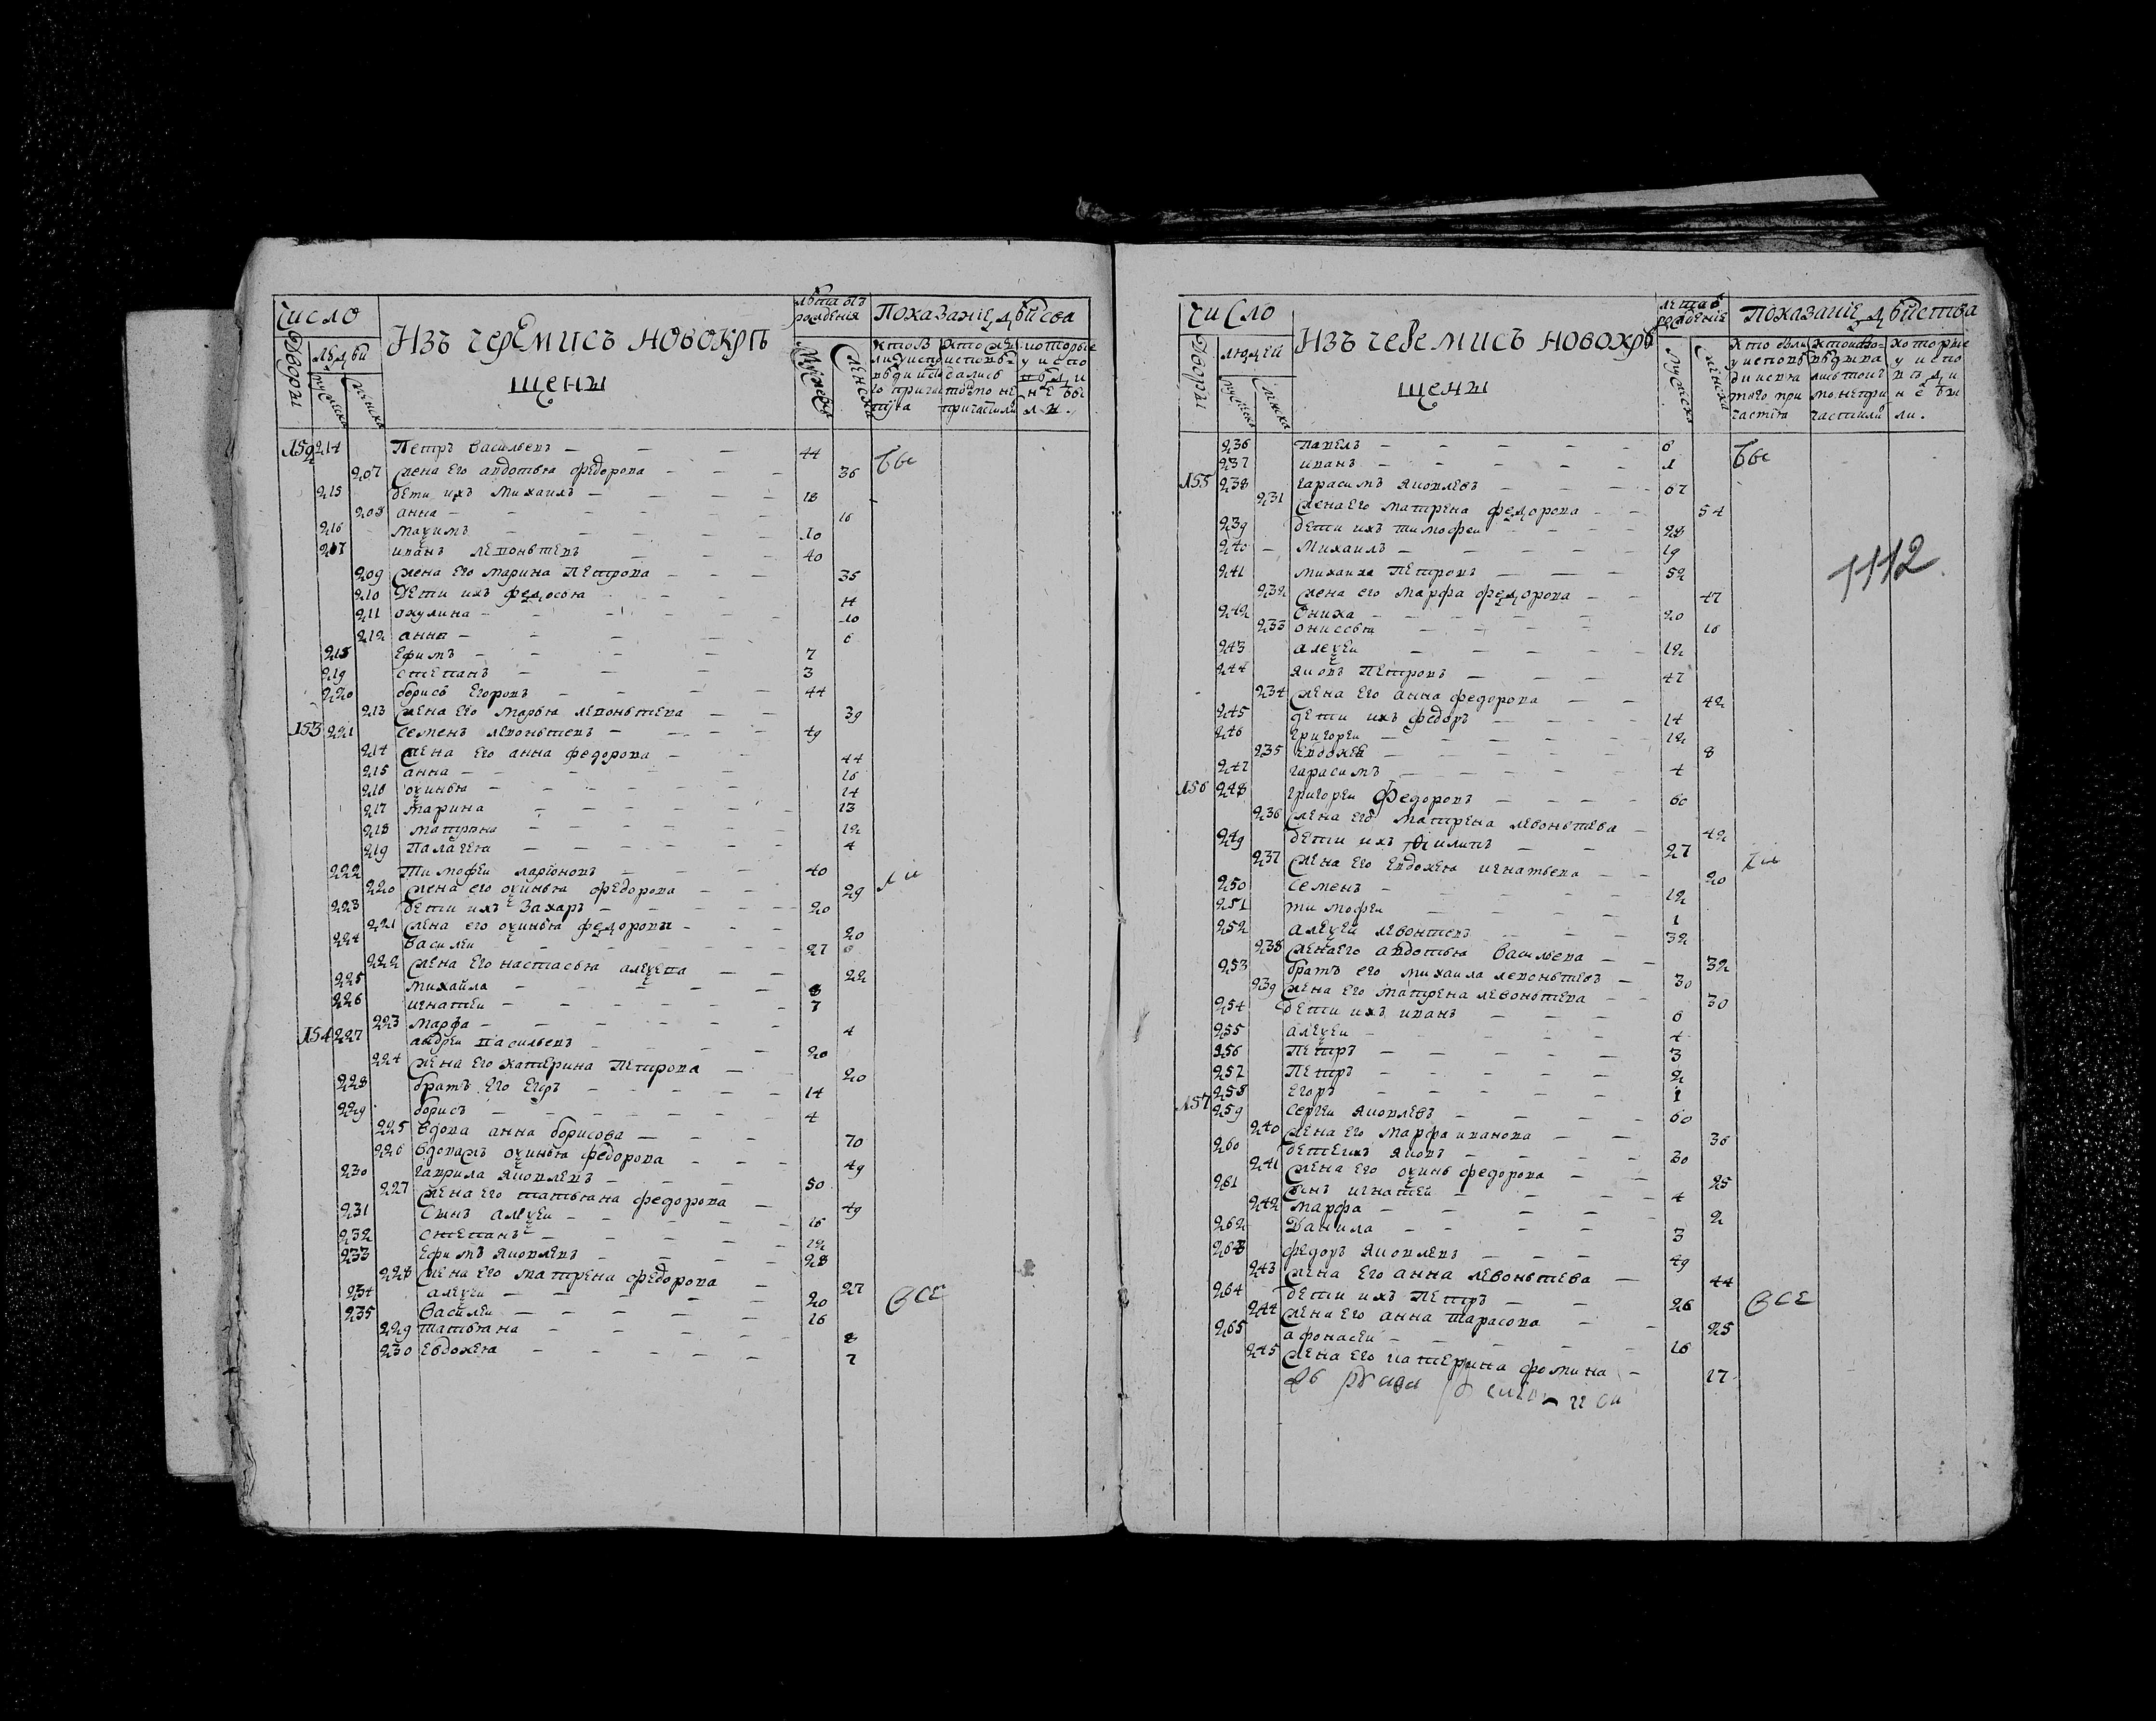 Число
Изъ черемисъ новокрѣ
щены
лѣта отъ
рожденія
Показаніе дѣйсва
Дворы
людѣй
мужеска
женска
Мужеска
женска
152 214 Петръ Васильевъ 44
207 жена его авдотья федорова 36
бы
215 дети ихъ Михаилъ 18
208 анна 16
216 Маѯимъ 10
217 иванъ левоньтевъ 40
209 жена его марина Петрова 35
210 дети ихъ федосья 14
211 окулина 10
212 анна 6
218 Ефимъ 7
219 степанъ 3
220 борисъ Егоровъ 44
213 жена его марья левоньтева 39
153 221 семенъ левоньтевъ 49
214 жена его анна федорова 44
215 анна 16
216 оѯинья 14
217 марина 13
218 матрена 12
219 палагея 4
222 тимофеи ларіоновъ 40
220 жена его оѯинья федорова 29
ли
223 дети ихъ Захаръ 20
221 жена его оѯинья федорова 20
224 василеи 27
222 жена его настасья алеѯева 22
225 михайла 8
226 игнатеи 7
223 марфа 4
154 227 андреи васильевъ 20
224 жена его катерина петрова 20
228 братъ его Егоръ 14
229 борисъ 4
225 вдова анна борисова 70
226 вдова оѯинья федорова 49
230 гаврила яковлевъ 50
227 жена его татьяна федорова 49
231 сынъ алеѯеи 16
232 степанъ 12
233 Ефимъ яковлевъ 28
228 жена его матрена федорова 27
234 алеѯеи 20
все
235 василеи 16
229 татьяна 8
230 евдокея 7
чиСло
Изъ черемисъ новокрѣ
щены
лета отъ
рожденіе
Показаніе дѣйства
Дворы
людѣй
мужеска
женска
мужеска
женска
236 павелъ 6
бы
237 иванъ 1
155 238 гарасимъ яковлевъ 67
231 жена его матрена федорова 54
239 дети ихъ тимофеи 28
240 михаилъ 19
1112
241 михаила петровъ 52
232 жена его марфа федорова 47
242 Оника 20
233 онисья 16
243 алеѯеи 12
244 яковъ петровъ 47
234 жена его анна федорова 42
245 дети ихъ федоръ 14
246 григореи 12
235 евдокея 8
247 гарасимъ 4
156 248 григореи федоровъ 60
236 жена его матрена левоньтева 42
249 дети ихъ филипъ 27
237 жена его евдокея игнатьева 20
ли
250 семенъ 12
251 тимофеи 1
252 алеѯеи левонтевъ 32
238 жена его авдотья васильева 32
253 братъ его михаила левоньтевъ 30
239 жена его матрена левоньтева 30
254 дети ихъ иванъ 6
255 алеѯеи 4
256 петръ 3
257 петръ 2
258 Егоръ 1
157 259 сергеи яковлевъ 60
240 жена его марфа иванова 36
260 дети ихъ яковъ 30
241 жена его оѯинь федорова 25
261 сынъ игнатеи 4
242 марфа 2
262 данила 3
263 федоръ яковлевъ 49
243 жена его анна левоньтева 44
264 дети ихъ петръ 26
все
244 жена его анна тарасова 25
265 афонасеи 16
245 жена его катерина фомина 17